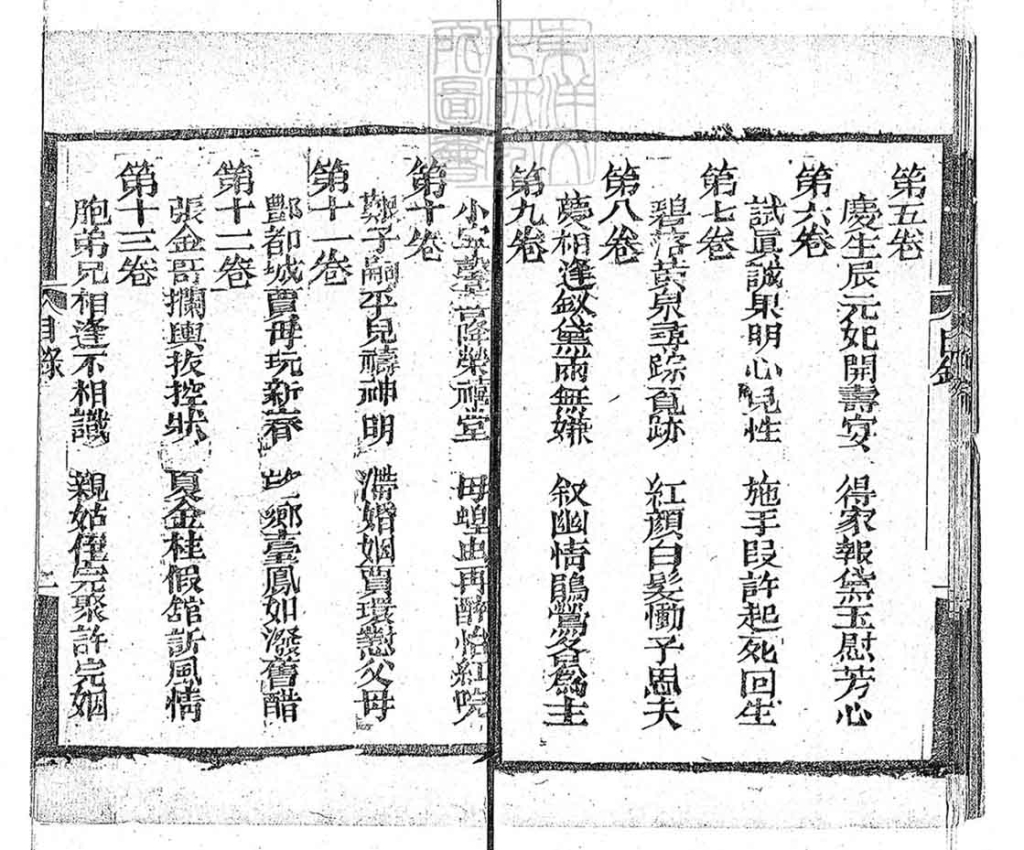 第五卷
慶生辰元妃開壽宴 得家報黛玉慰芳心
第六卷
試眞誠果明心見性 施手段許起死回生
第七卷
碧落黃泉尋踪覓跡 紅顏白髮慟子思夫
第八卷
夢相逢釵黛兩無嫌 叙幽情鵑鶯各爲主
第九卷
小 降榮禧堂 母蝗虫再醉怡紅院
第十卷
艱子嗣平兒禱神明 滯婚姻賈環懟父母
第十一卷
酆都城賈母玩新齋 望鄉臺鳳姐潑舊醋
第十二卷
張金哥攔輿投控狀 夏金桂假舘訴風情
第十三卷
胞弟兄相逢不相識 親姑侄完聚許完姻
目錄
目錄